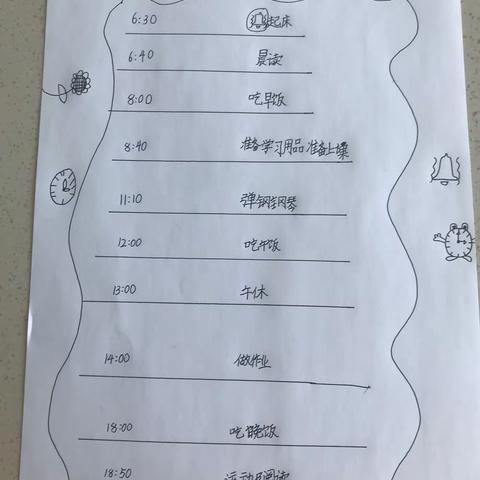 6:30 起床
6:40 晨读
8:00 吃早饭
8:40 准备学习用品准备上课
11:10 弹钢钢琴
12:00 吃午饭
13:00 午休
14:00 做作业
18:00 吃晚饭
18:50 运动及阅读